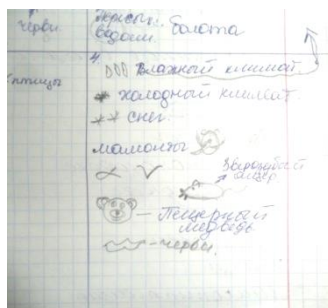 черви
болота
птицы
4.
Влажный климат.
* холодный климат.
** снег.
мамонты
Зверозубый
ящер
– Пещерный
медведь
– черви.